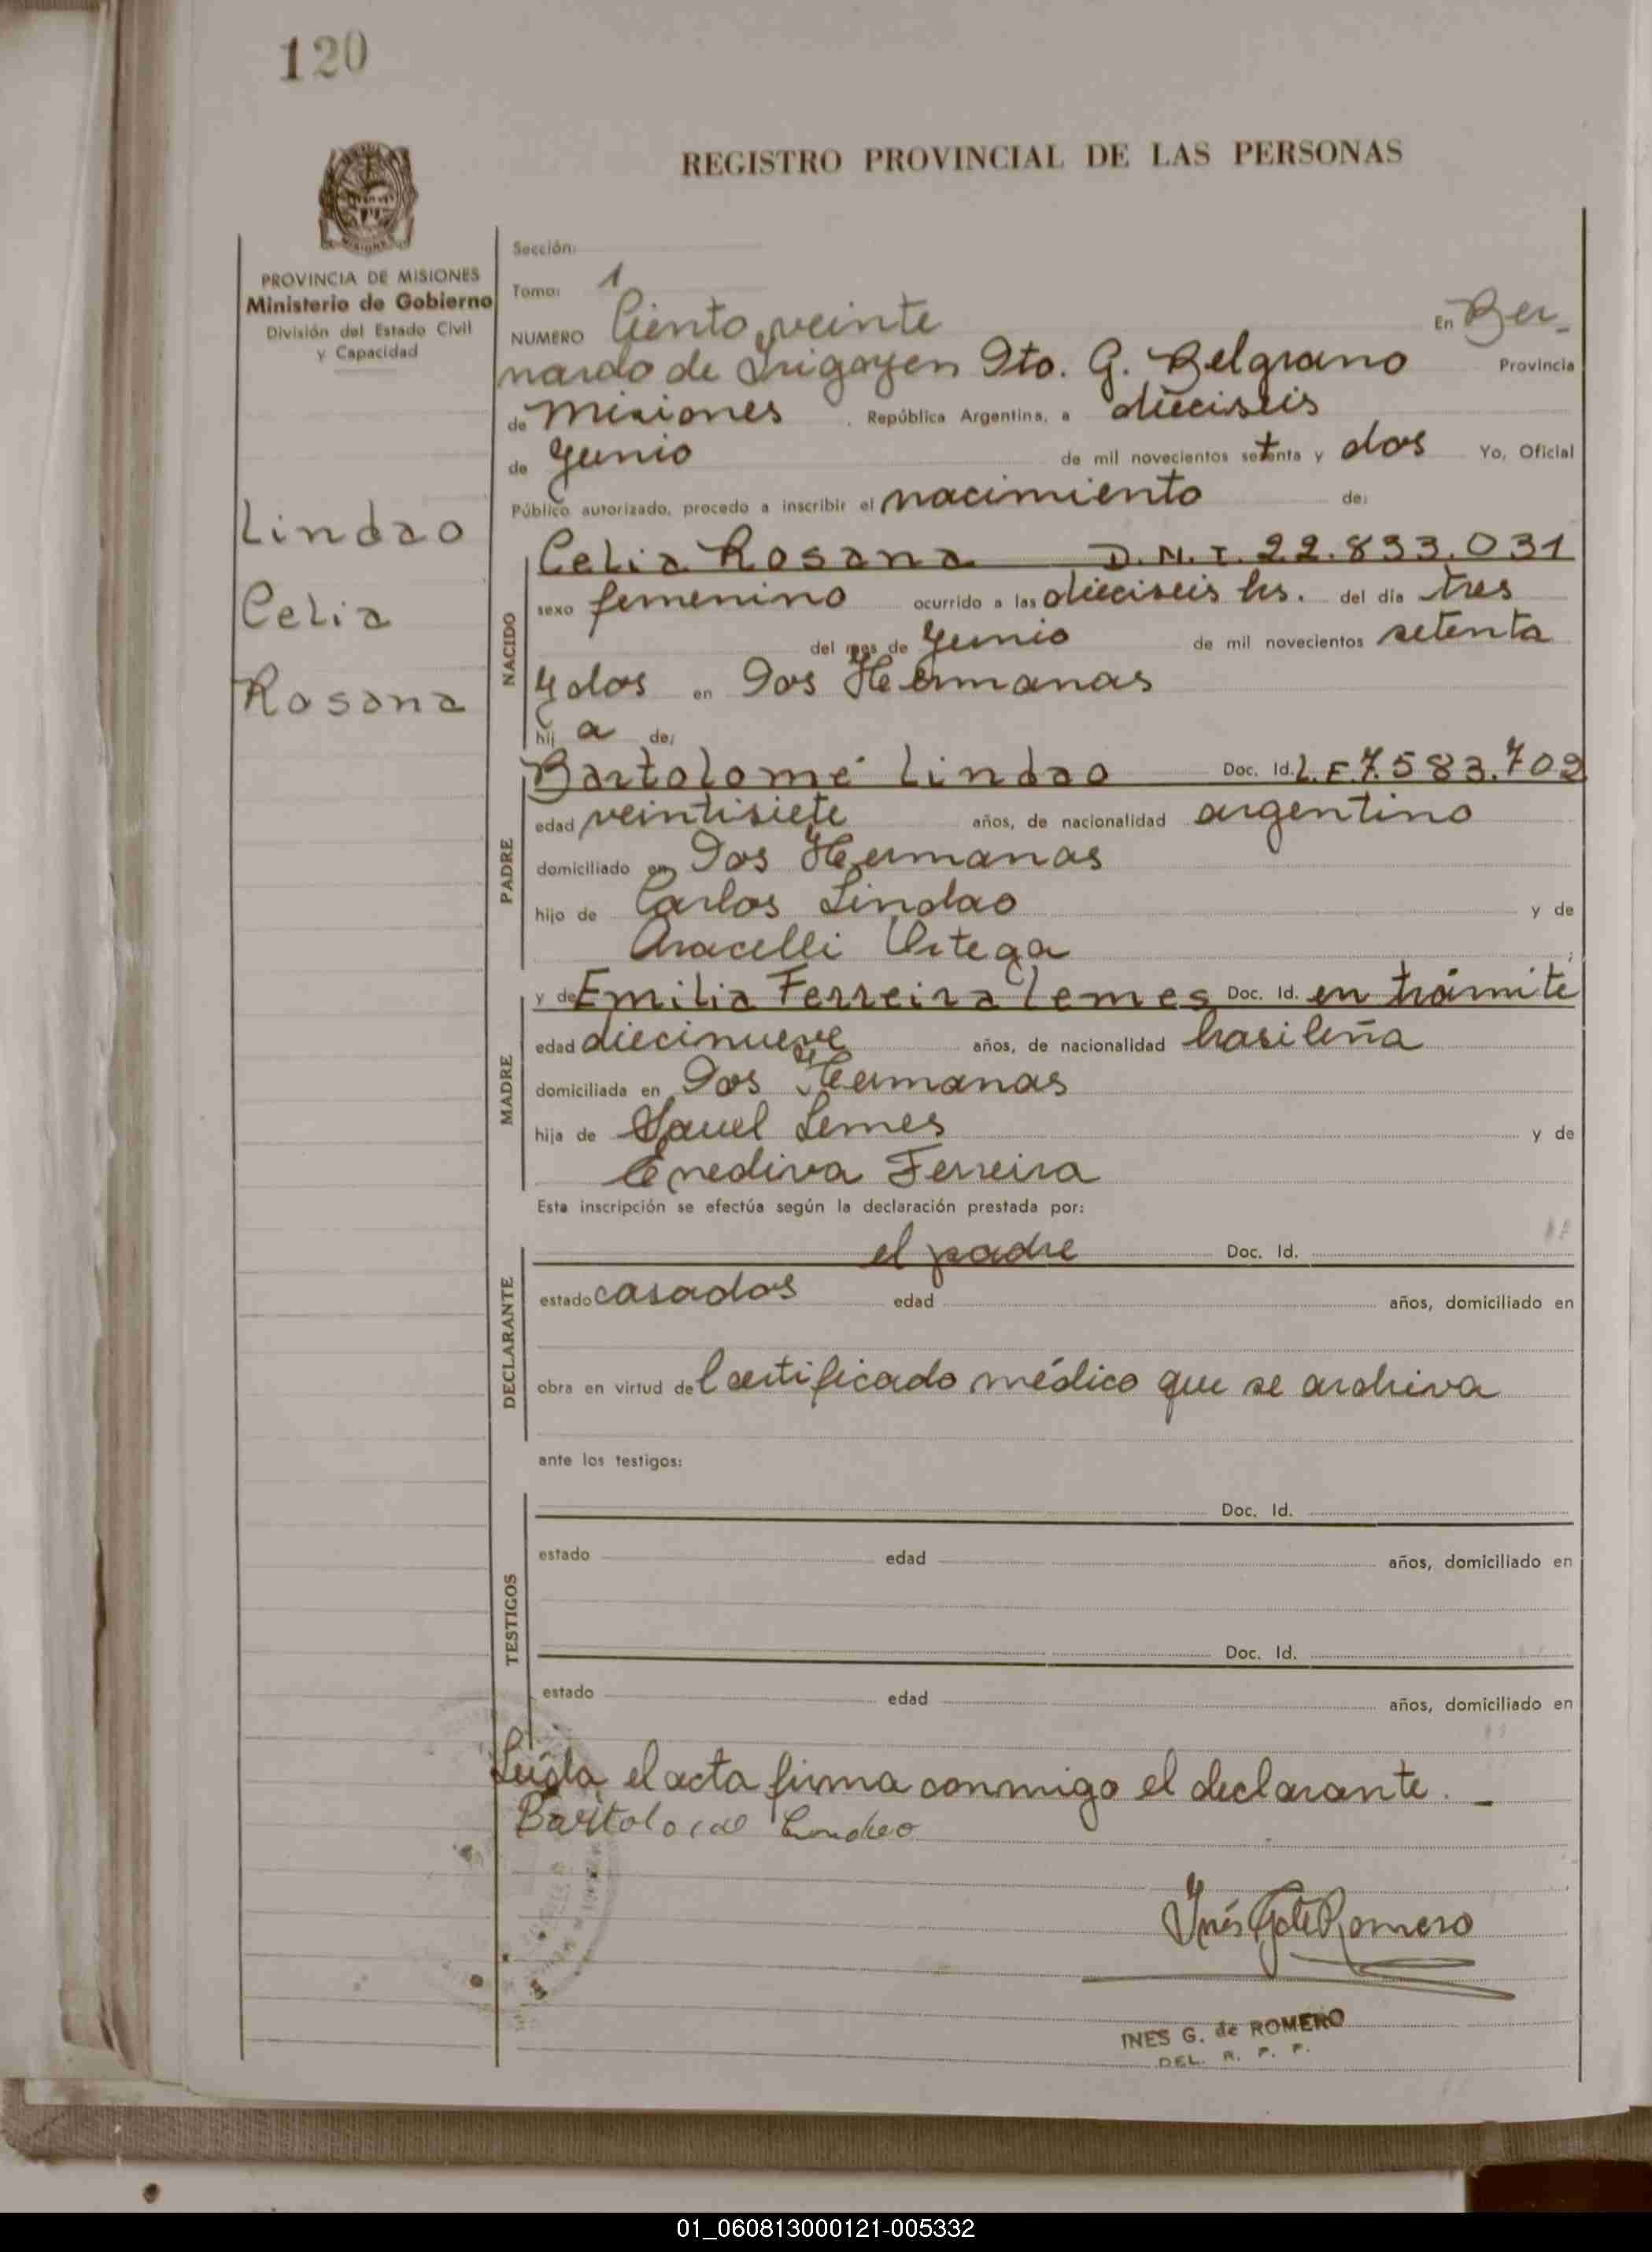 120
REGISTRO PROVINCIAL DE LAS PERSONAS
PROVINCIA DE MISIONES
Ministerio de Gobierno
División del Estado Civil
y Capacidad
Lindao
Celia
Rosana
Sección:
Tomo: 1
NUMERO Ciento veinte En Ber-
nardo de Irigoyen Dto. G. Belgrano Provincia
de Misiones, República Argentina, a dieciseis
de Junio de mil novecientos setenta y dos Yo, Oficial
Público autorizado, procedo a inscribir el nacimiento de:
NACIDO
Celia Rosana D.N.I. 22.833.031
sexo femenino ocurrido a las dieciseis hs. del día tres
del mes de Junio de mil novecientos setenta
y dos en Dos Hermanas
hij a de:
PADRE
Bartolomé Lindao Doc. Id. L.E 7.583.702
edad veintisiete años, de nacionalidad argentino
domiciliado en Dos Hermanas
hijo de Carlos Lindao y de
Aracelli Ortega ;
MADRE
y de Emilia Ferreira Lemes Doc. Id. en trámite
edad diecinueve años, de nacionalidad brasileña
domiciliada en Dos Hermanas
hija de Sauel Lemes y de
Enediva Ferreira
Esta inscripción se efectúa según la declaración prestada por:
DECLARANTE
el padre Doc. Id.
estado casados edad años, domiciliado en
obra en virtud de Certificado médico que se archiva
ante los testigos:
TESTIGOS
Doc. Id.
estado edad años, domiciliado en
Doc. Id.
estado edad años, domiciliado en
Leída el acta firma conmigo el declarante. -
Inés G de Romero
INES G. de ROMERO
DEL. R. P. P.
01_060813000121-005332